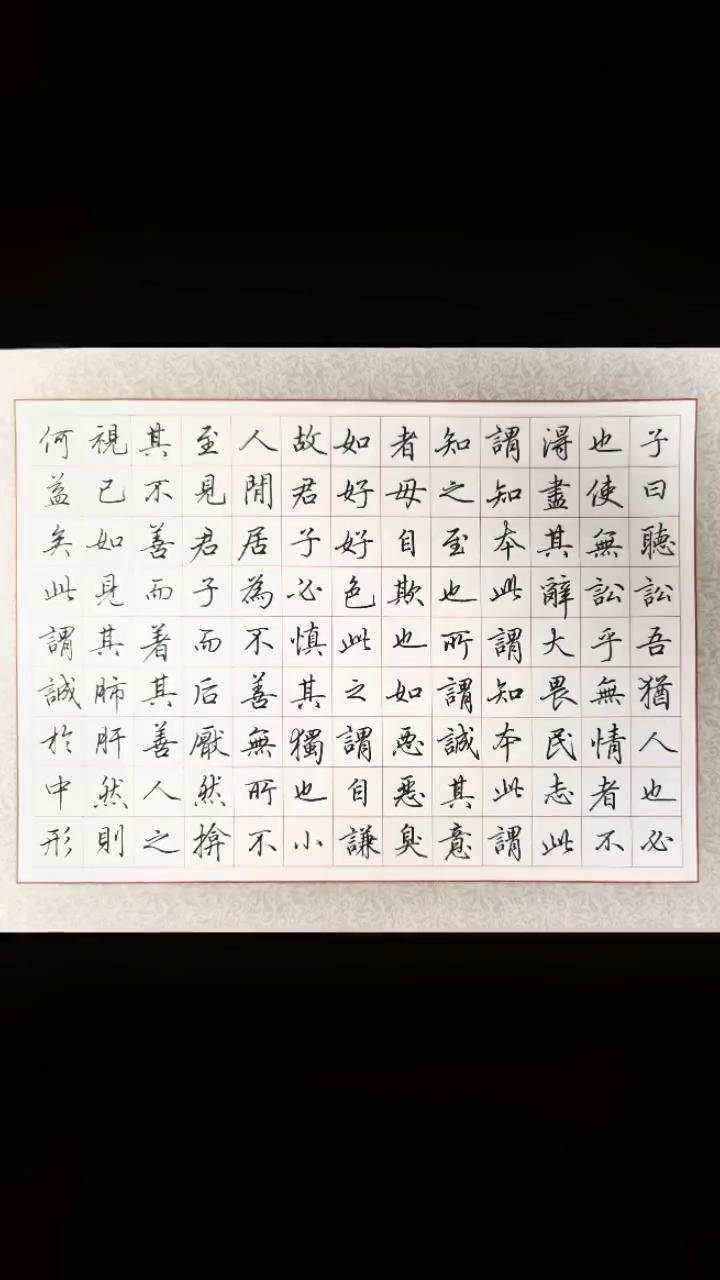 子曰聽訟吾猶人也必
也使無訟乎無情者不
得盡其辭大畏民志此
謂知本此謂知本此謂
知之至也所謂誠其意
者毋自欺也如惡惡臭
如好好色此之謂自謙
故君子必慎其獨也小
人閒居為不善無所不
至見君子而后厭然揜
其不善而著其善人之
視己如見其肺肝然則
何益矣此謂誠於中形